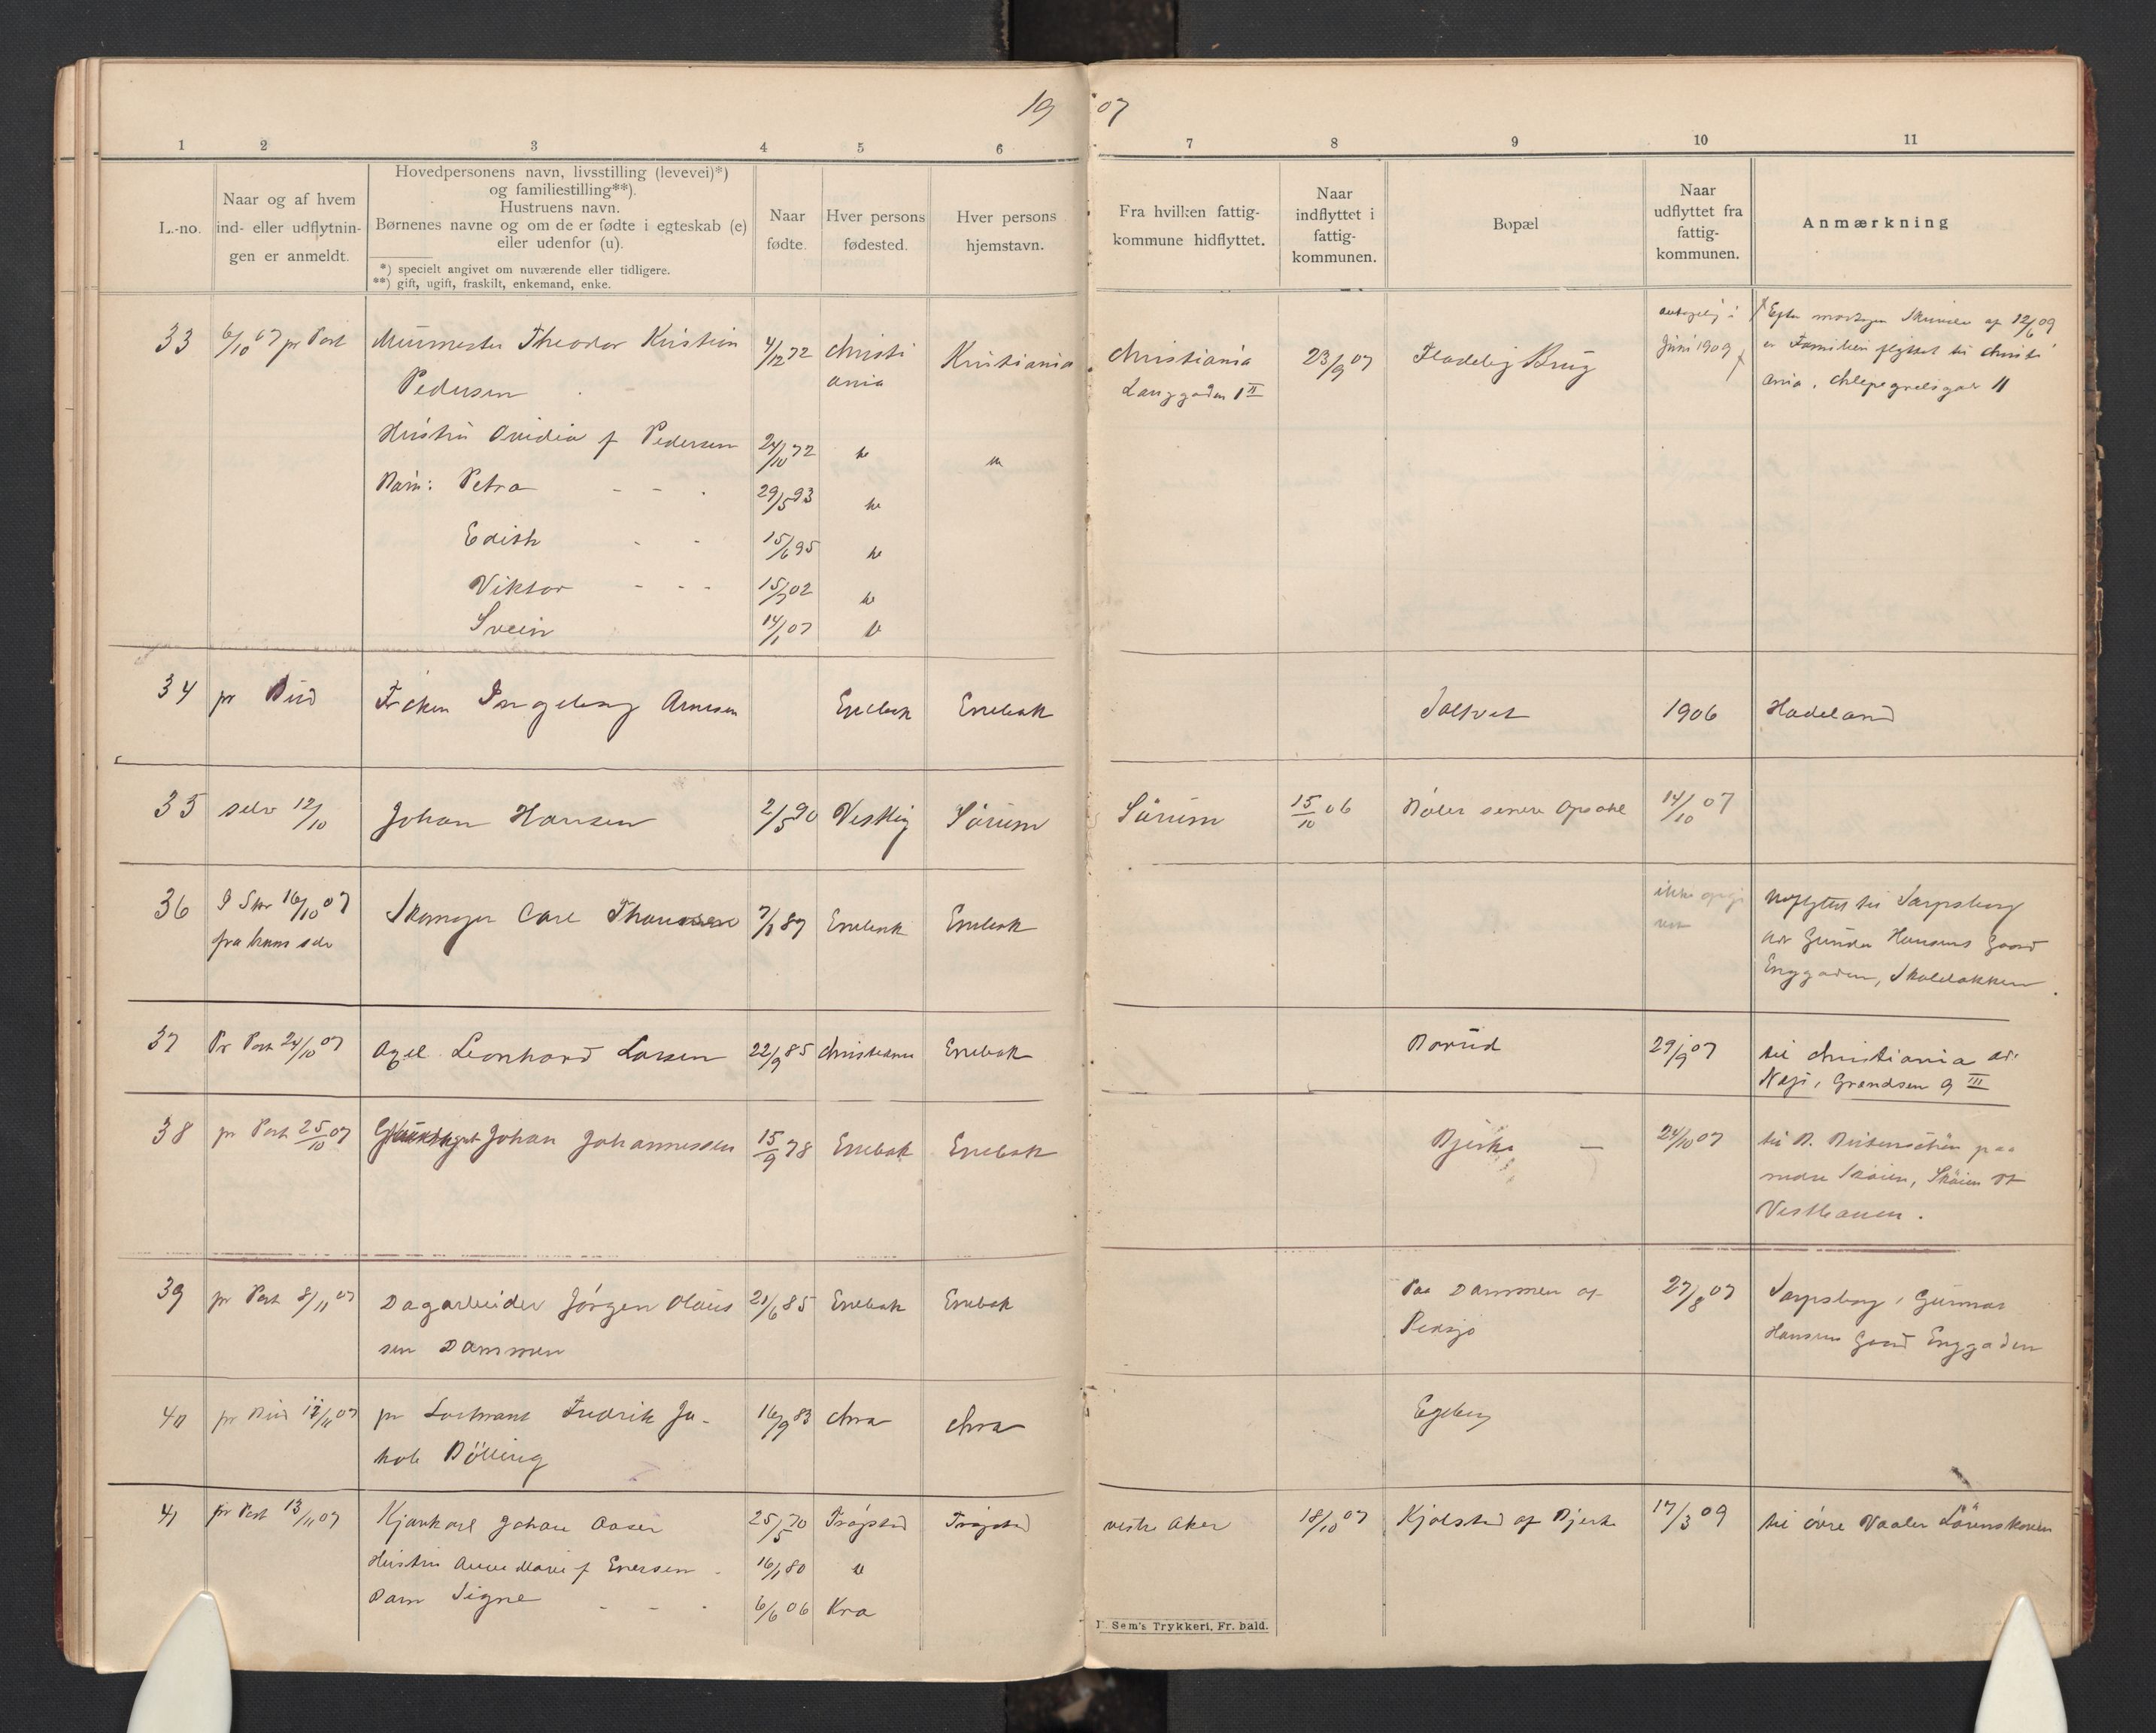 19 07
1 2 3 4 5 6 7 8 9 10 11
L.-no.
Naar og af hvem
ind- eller udflytnin-
gen er anmeldt.
Hovedpersonens navn, livsstilling (levevei)*)
og familiestilling**).
Hustruens navn.
Børnenes navne og om de er fødte i egteskab (e)
eller udenfor (u).
*) specielt angivet om nuværende eller tidligere.
**) gift, ugift, fraskilt, enkemand, enke.
Naar
fødte.
Hver persons
fødested.
Hver persons
hjemstavn.
Fra hvilken fattig-
kommune hidflyttet.
Naar
indflyttet i
fattig-
kommunen.
Bopæl
Naar
udflyttet fra
fattig-
kommunen.
Anmærkning
33 6/10 07 pr Post Murmester Theodor Kristian 4/12 72 Christi Kristiania Christiania 23/9 07 Fladeby Brug
Pedersen ania Langgaden 1 II
Juni 1909
Efter 12/6 09
er Familien flyttet til Christi
ania, 11
Hustru Ovidia f Pedersen 24/10 72
Barn: Petra 29/5 93
Edith 15/6 95
Viktor 15/7 02
Svein 14/1 07
34 pr Bud Frøken Ingeborg Arnesen Enebak Enebak 1906 Hadeland
35 selv 12/10 Johan Hansen 2/5 90 Vestby Sørum Sørum 15/10 06 Bøler senere Opsahl 14/10 07
36 16/10 07 Skomager Carl Enebak Enebak
fra ham selv
ikke opgi
vet
til Sarpsborg
adr Gunder Hansens Gaard
Enggaden,
37 Pr Post 24/10 07 Axel Leonhard Larsen 22/9 85 Christiania Enebak Borud 29/9 07 til Christiania adr
Grændsen 9 III
38 pr Post 25/10 07 Johan Johannessen 15/9 78 Enebak Enebak Bjerke — 24/10 07 til
nedre Skøien, Skøien St
39 pr Post 8/11 07 Dagarbeider Jørgen Olaus 21/6 85 Enebak Enebak Paa Dammen af 27/8 07 Sarpsborg, Gunnar
sen Dammen Hansens Gaard Enggaden
40 pr Bud 12/11 07 pr Fredrik Ja- 16/9 83 Chra Chra Egeberg
kob Bølling
41 pr Post 13/11 07 Kjørekarl Johan Aasen 25/5 70 Trøgstad Trøgstad vestre Aker 18/10 07 Kjølstad af Bjerke 17/3 09 til øvre Vaaler Lørenskoven
Hustru Anne Marie f Enersen 16/1 80
Barn Signe 6/6 06 Kra
Sem's Trykkeri, Fr. hald.